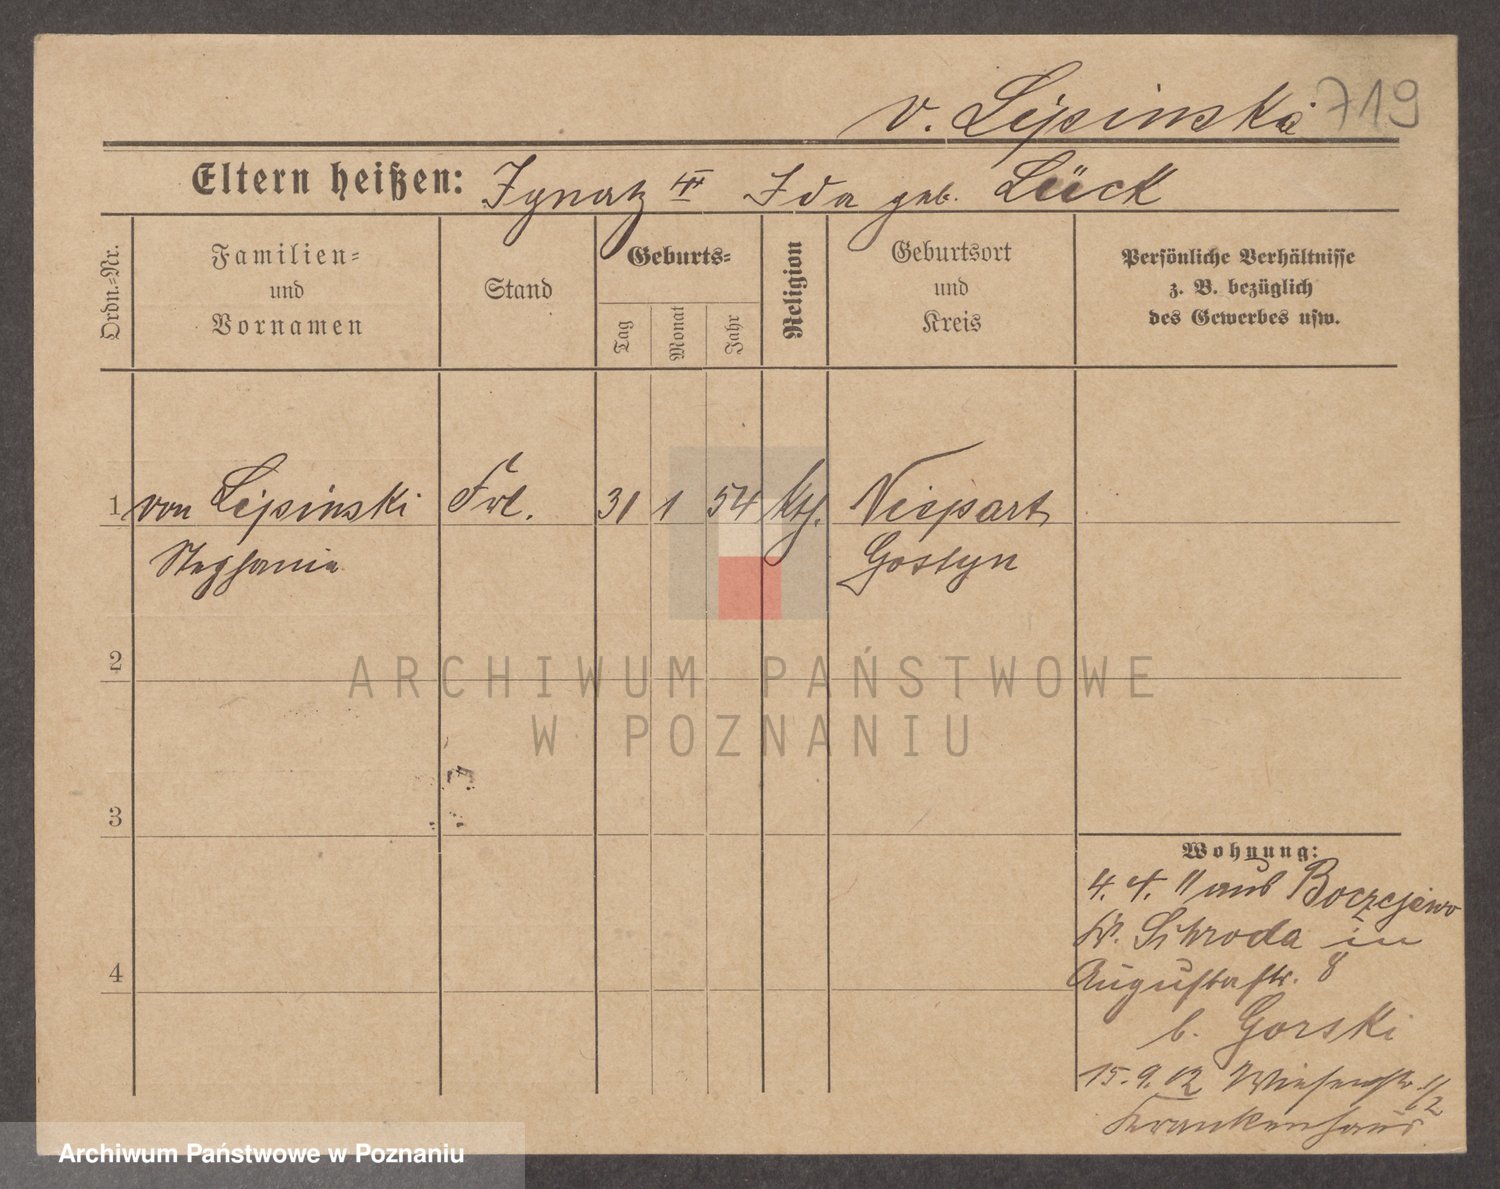 v. Lipinski 719
Eltern heißen: Ignatz II Ida geb. Lück
Ordn.-Nr.
Familien-
und
Vornamen
Stand
Geburts-
Tag
Monat
Jahr
Religion
Geburtsort
und
Kreis
Persönliche Verhältnisse
z. B. bezüglich
des Gewerbes usw.
1 von Lipinski Frl. 31 1 54 kth.
Stephanie Gostyn
2
3
4
Wohnung:
4. 4. 11 aus
Kr. Schroda in
Augustastr. 8
b. Gorski
15.9.12 Wiesenstr. 1/2
Krankenhaus
ARCHIWUM PAŃSTWOWE
W POZNANIU
Archiwum Państwowe w Poznaniu